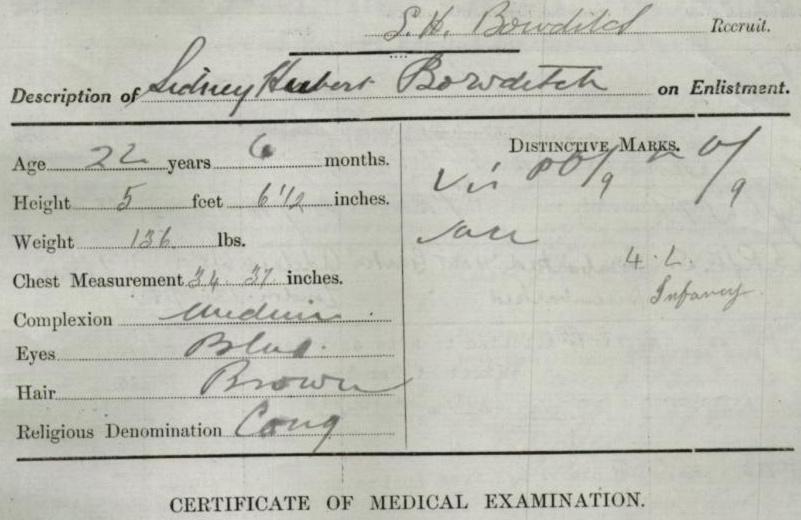 S. H. Bowditch Recruit.
Description of Sidney Herbert Bowditch on Enlistment.
Age 22 years 6 months.
Height 5 feet 6 1/2 inches.
Weight 136 lbs.
Chest Measurement 34 37 inches.
Complexion Medium
Eyes Blue.
Hair Brown
Religious Denomination Cong
DISTINCTIVE MARKS.
6/9 6/9
4. L.
Infancy
CERTIFICATE OF MEDICAL EXAMINATION.